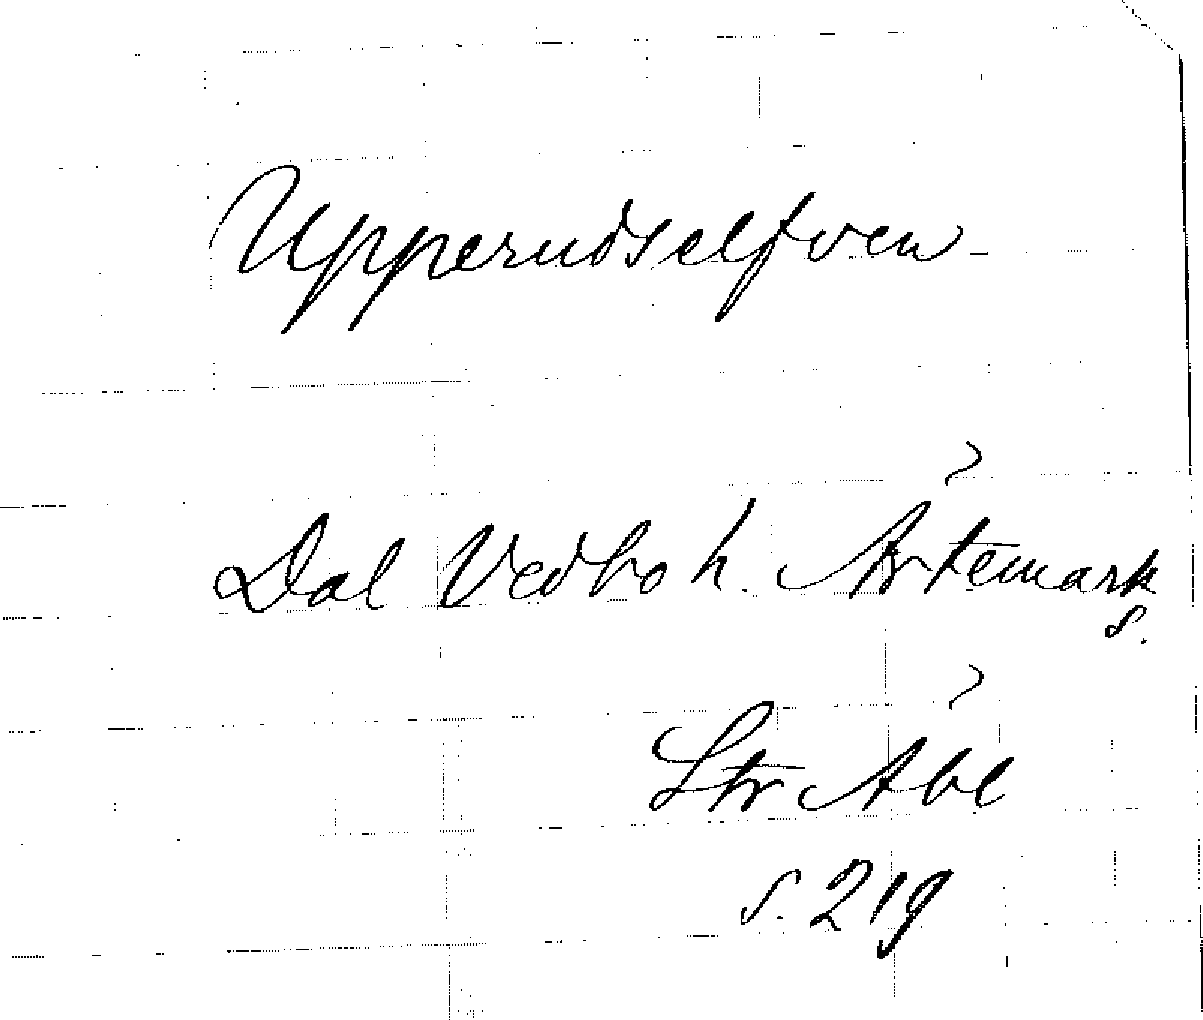 Upperudselfven
Dal Vedbo h. Årtemark
s.
Str Åbe
s. 219